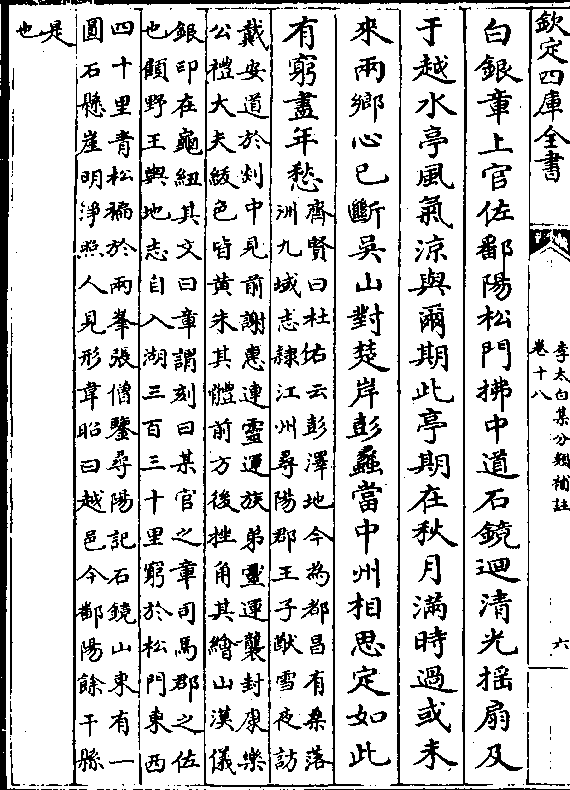 欽定四庫全書
李太白集分類補註
卷十八
六
白銀章上官佐鄱陽松門拂中道石鏡迴清光揺扇及
于越水亭風氣涼與爾期此亭期在秋月滿時過或未
來兩鄉心已斷吳山對楚岸彭蠡當中州相思定如此
有窮盡年愁
齊賢曰杜佑云彭澤地今為都昌有桑落
洲九域志隸江州尋陽郡王子猷雪夜訪
戴安道於剡中見前謝惠連靈運族弟靈運襲封康樂
公禮大夫紱色皆黄朱其體前方後挫角其繪山漢儀
銀印在龜紐其文曰章謂刻曰某官之章司馬郡之佐
也顧野王與地志自入湖三百三十里窮於松門東西
四十里青松徧於兩峯張僧鑒尋陽記石鏡山東有一
圓石懸崖明淨照人見形韋昭曰越邑今鄱陽餘干縣
是
也